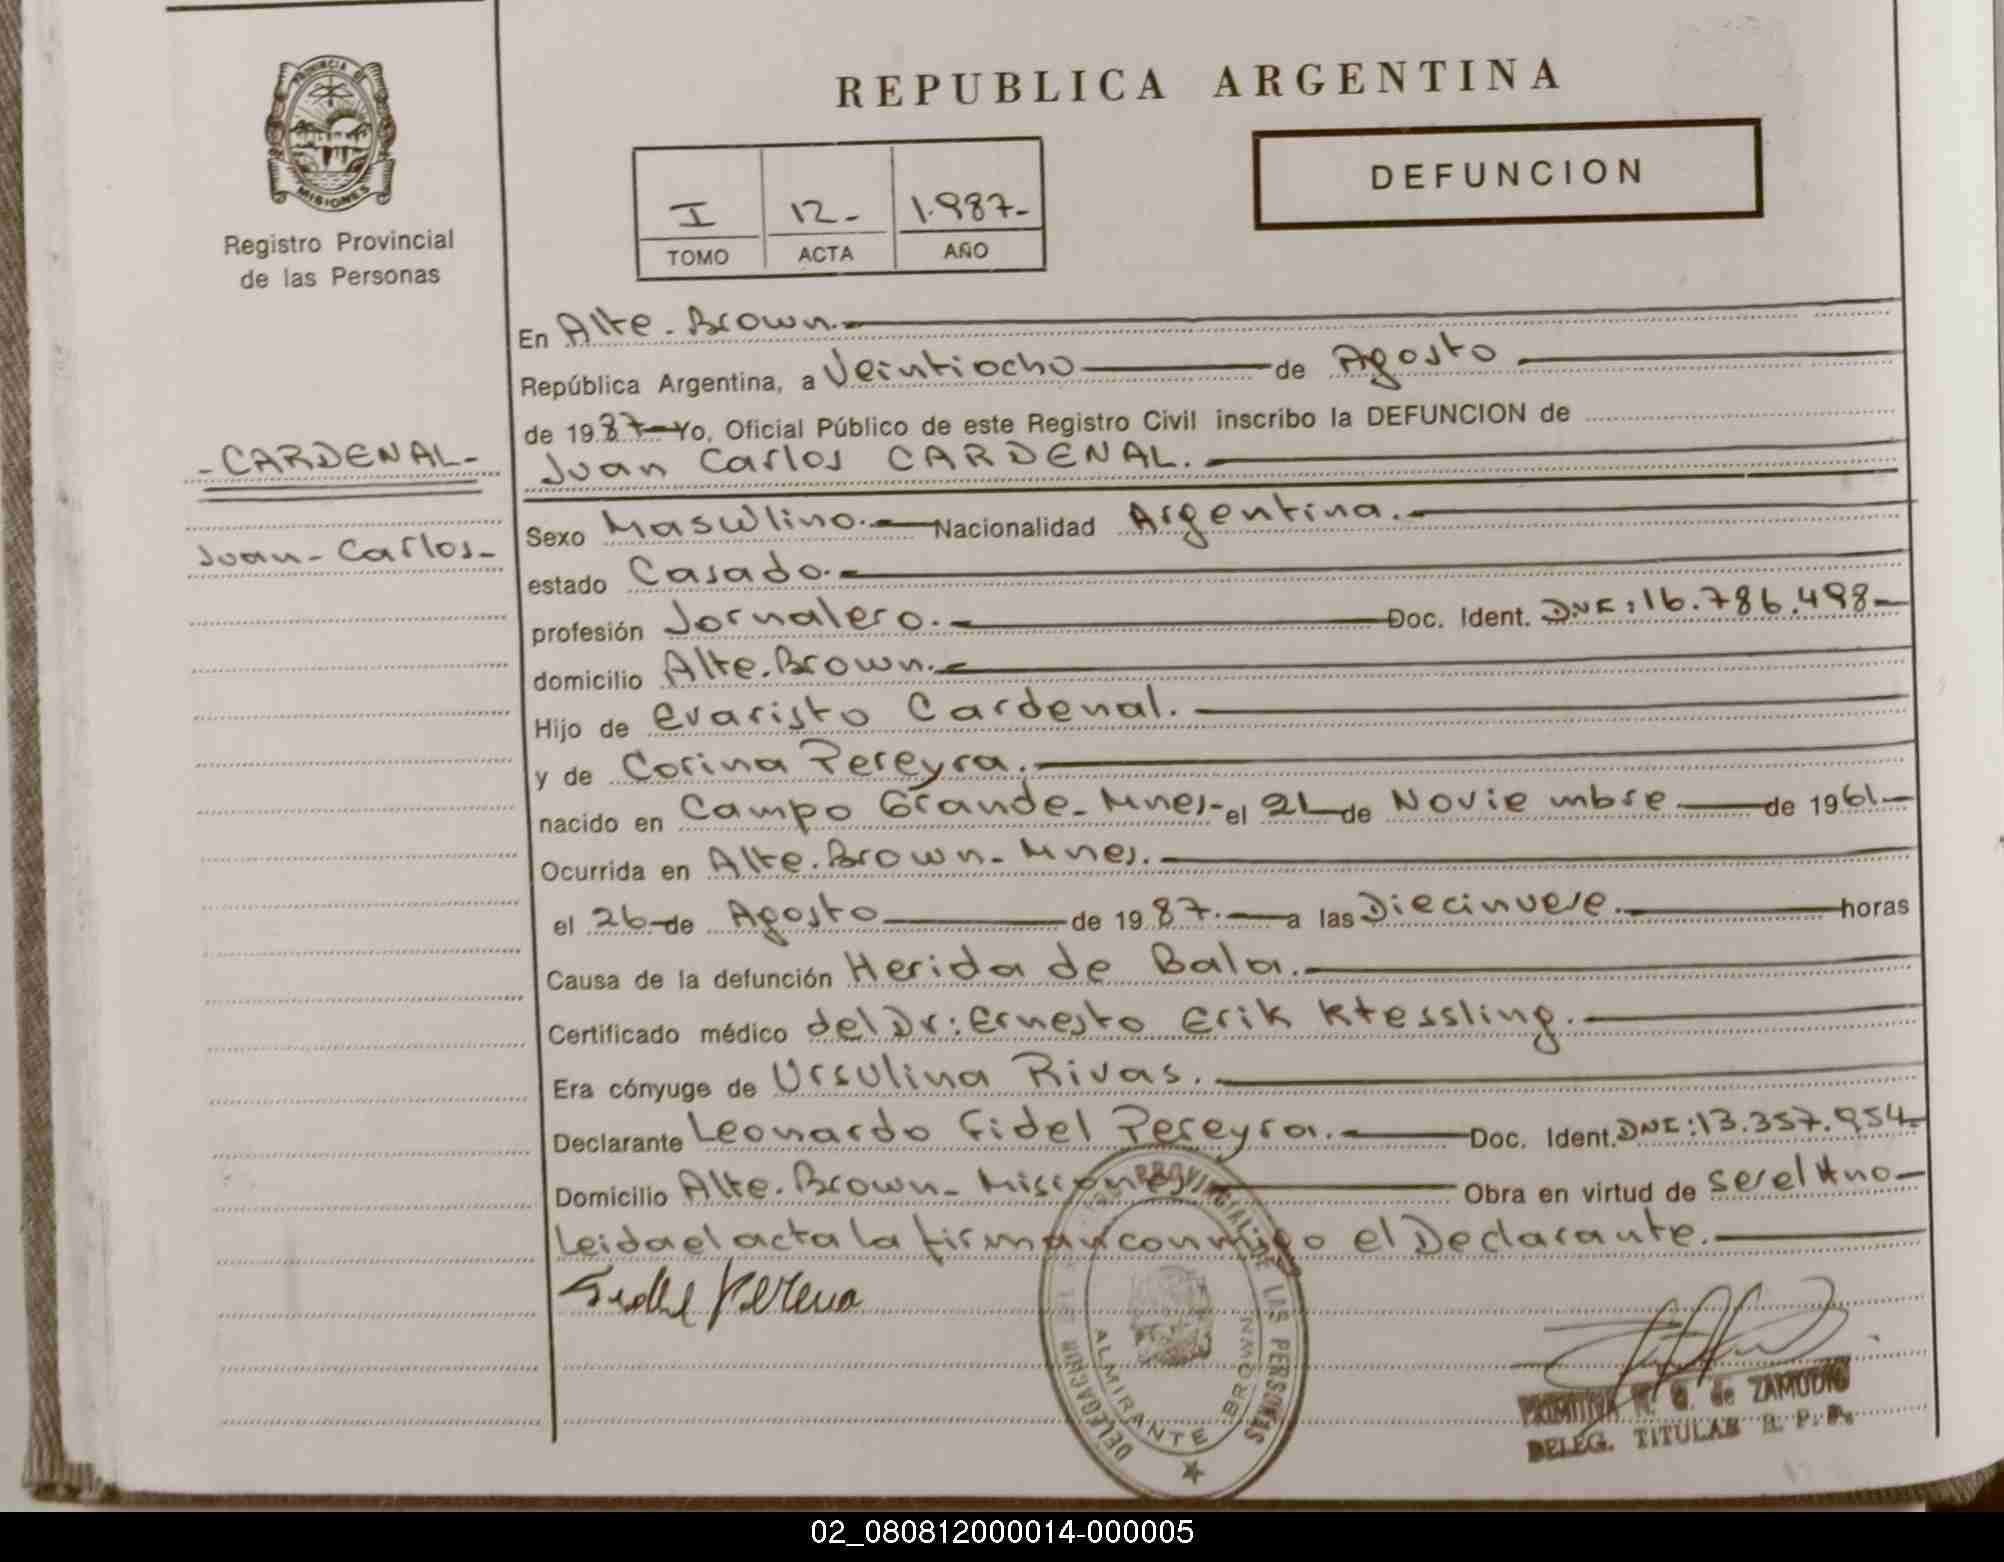 PROVINCIA DE
MISIONES
Registro Provincial
de las Personas
REPUBLICA ARGENTINA
DEFUNCION
I 12- 1.987-
TOMO ACTA AÑO
-CARDENAL-
Juan-Carlos-
En Alte. Brown.
República Argentina, a Veintiocho de Agosto
de 1987 Yo, Oficial Público de este Registro Civil inscribo la DEFUNCION de
Juan Carlos CARDENAL.
Sexo Masculino. Nacionalidad Argentina.
estado Casado.
profesión Jornalero. Doc. Ident. DNI: 16.786.498
domicilio Alte. Brown.
Hijo de Evaristo Cardenal.
y de Corina Pereyra.
nacido en Campo Grande- Mnes- el 21 de Noviembre de 1961
Ocurrida en Alte. Brown- Mnes.
el 26 de Agosto de 1987. a las Diecinueve. horas
Causa de la defunción Herida de Bala.
Certificado médico del Dr: Ernesto Erik Ktessling.
Era cónyuge de Ursulina Rivas.
Declarante Leonardo Fidel Pereyra. Doc. Ident. DNI: 13.357.954
Domicilio Alte. Brown- Misiones Obra en virtud de ser el Hno
Leida el acta la firman conmigo el Declarante.
PROVINCIAL DE LAS PERSONAS
DELEGACION
ALMIRANTE BROWN
de ZAMUDIO
DELEG. TITULAR R. P. P.
02_080812000014-000005